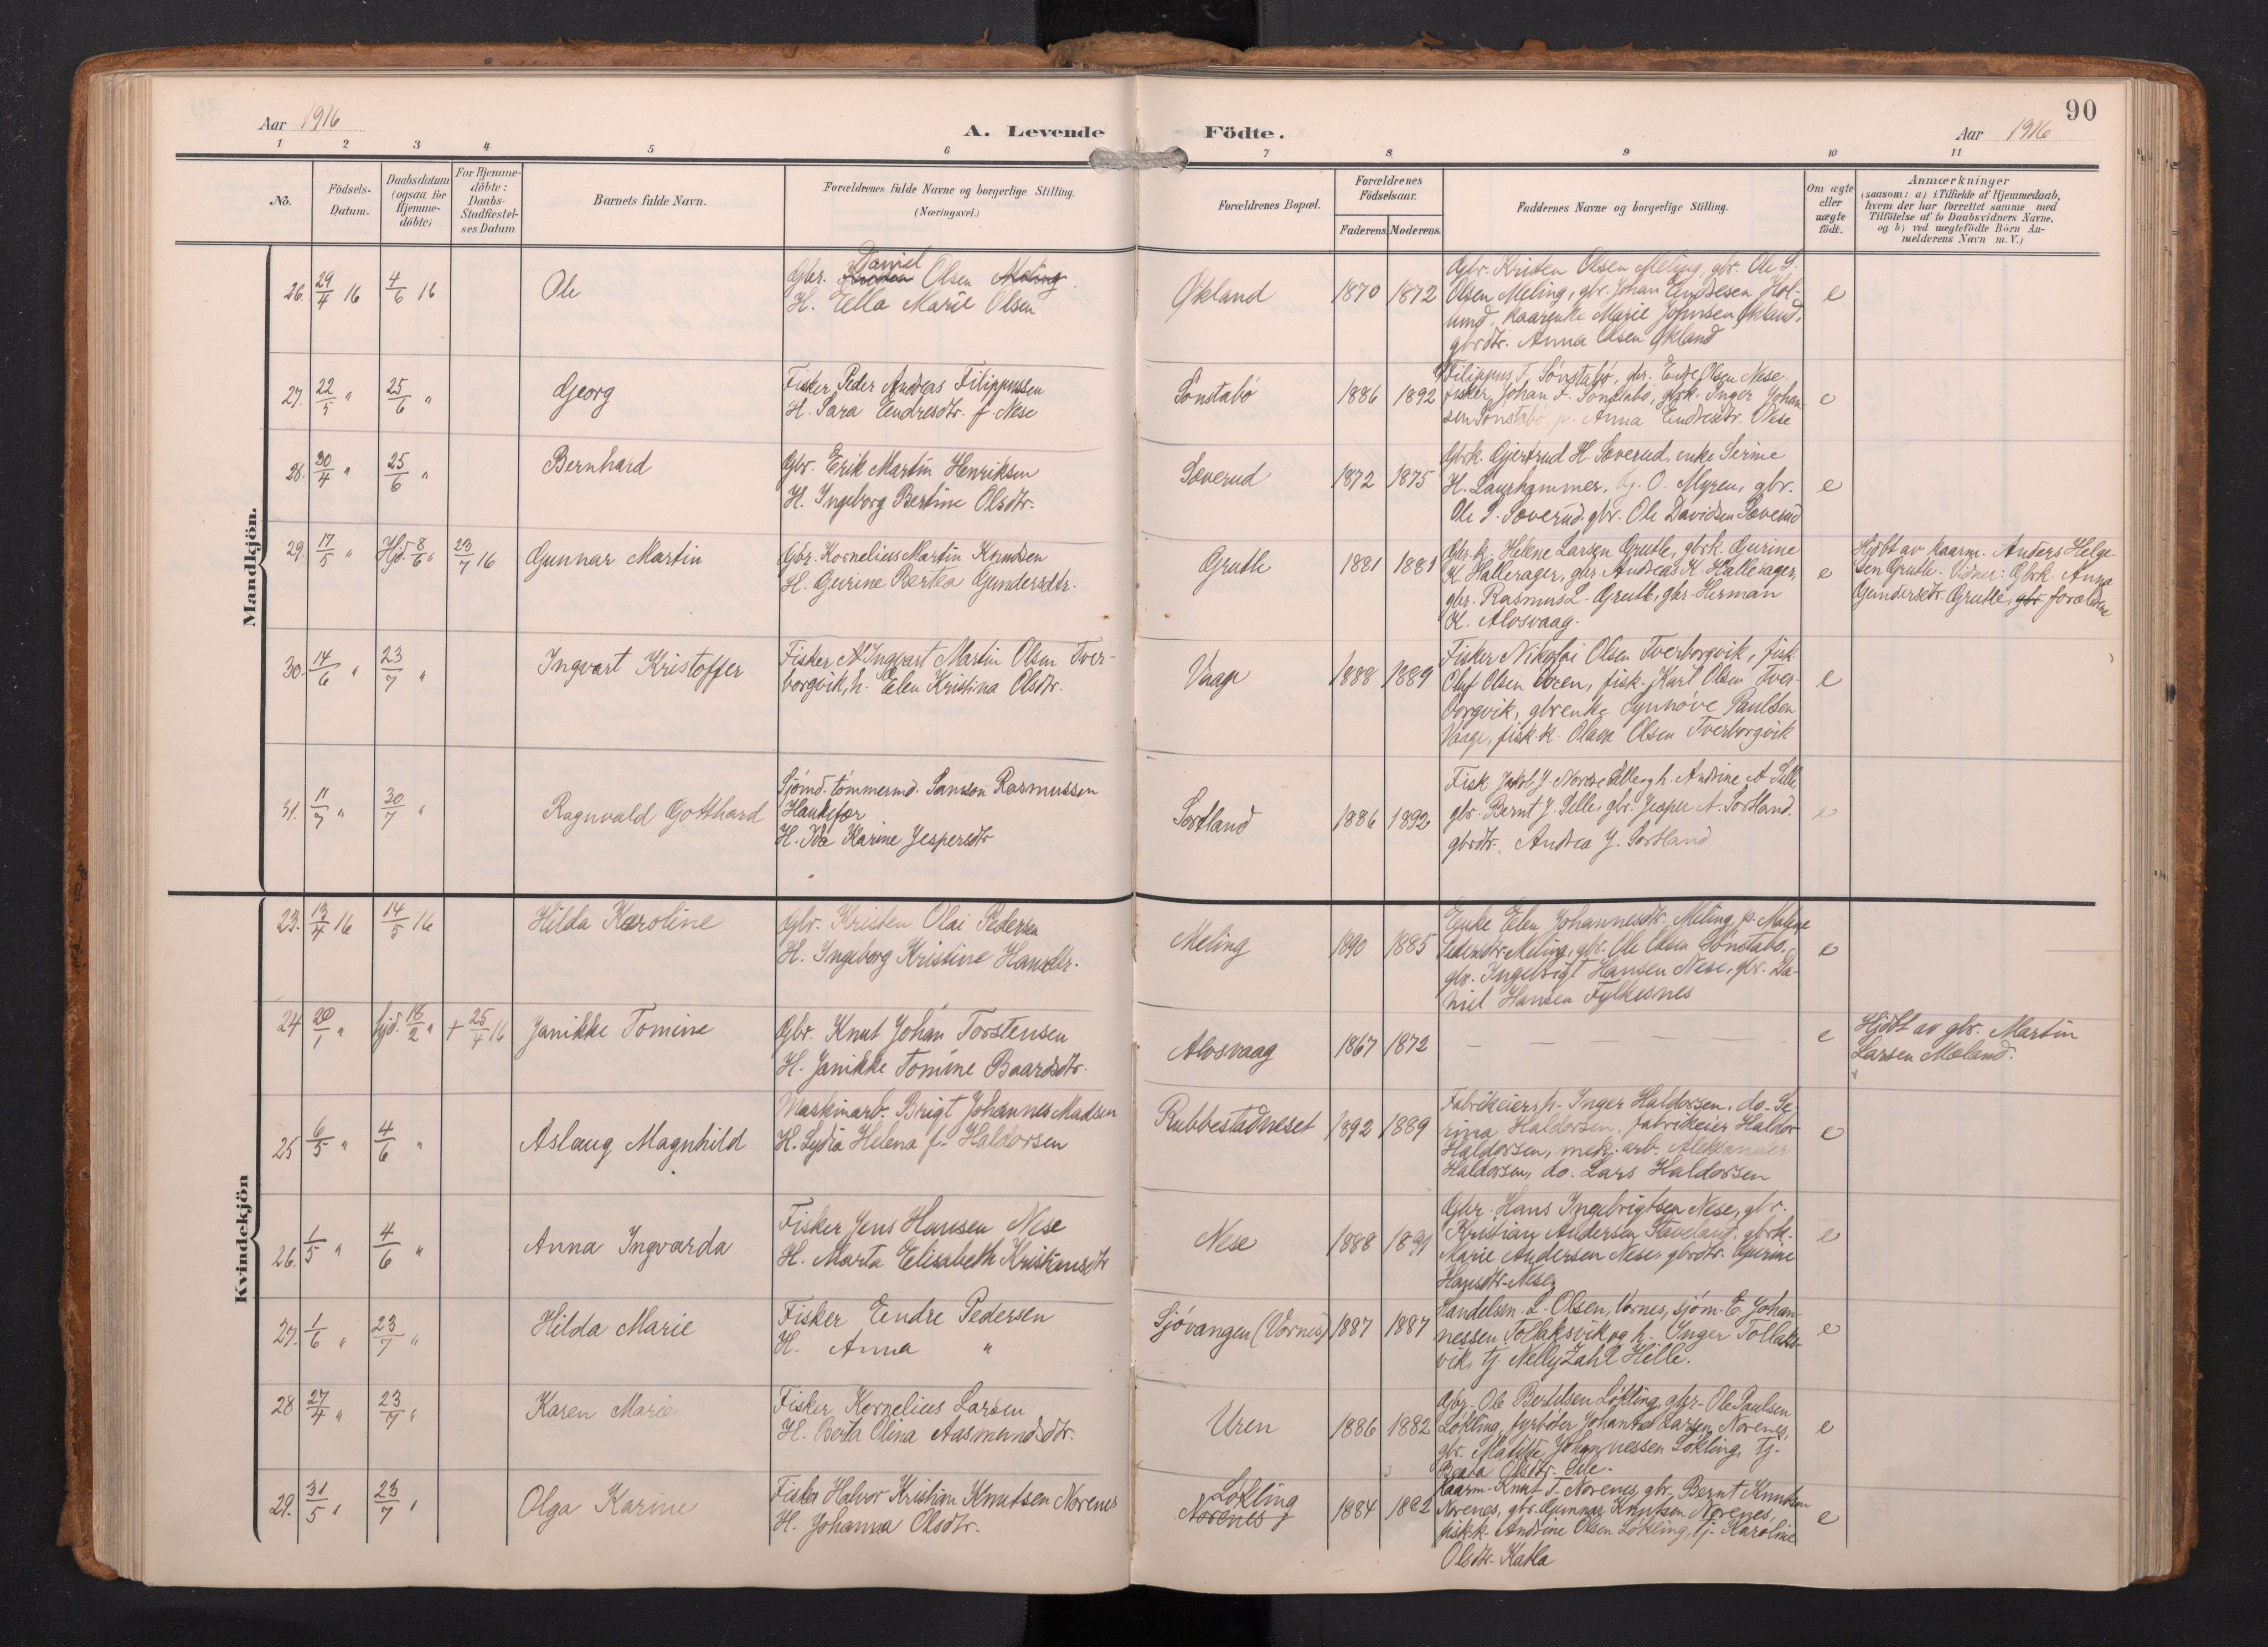 90
Aar 1916
A. Levende Födte.
Aar 1916
1 2 3 4 5 6 7 8 9 10 11
No.
Födsels-
Datum.
Daabsdatum
(ogsaa for
Hjemme-
döbte)
For Hjemme-
döbte:
Daabs-
Stadfæstel-
ses Datum
Barnets fulde Navn.
Forældrenes fulde Navne og borgerlige Stilling.
(Næringsvei.)
Forældrenes Bopæl.
Forældrenes
Födselsaar.
Faderens. Moderens.
Faddernes Navne og borgerlige Stilling.
Om ægte
eller
uægte
födt.
Anmærkninger
(saasom: a) i Tilfælde af Hjemmedaab,
hvem der har forrettet samme med
Tilföielse af to Daabsvidners Navne,
og b) ved uægtefödte Börn An-
melderens Navn m. V.)
Mandkjön.
26. 29/4 16 4/6 16 Ole
Daniel
Gbr. Kristen Olsen Meling
H. Ella Marie Olsen
Økland 1870 1872
Gbr. Kristen Olsen Meling, gbr. Ole S.
Olsen Meling, gbr. Johan Endresen Hol-
lund, kaarenke Marie Johnsen Økland,
gbrdtr. Anna Olsen Økland
e
27. 22/5 " 25/6 " Georg
Fisker Peder Andreas Filippussen
H. Sara Endresdtr. f. Nese
Sønstabø 1886 1892
Filippus F. Sønstabø, gbr. Endre Olsen Nese
fisker Johan F. Sønstabø, gbrk. Inger Johan-
sen Sønstabø, p. Anna Endresdtr. Nese
e
28. 30/4 " 25/6 " Bernhard
Gbr. Erik Martin Henriksen
H. Ingeborg Bertine Olsdtr.
Sæverud 1872 1875
Gbrk. Gjertrud H. Sæverud, enke Serine
H. Laurhammer, tj. O. Myren, gbr.
Ole S. Sæverud, gbr. Ole Davidsen Sæverud
e
29. 17/5 " Hjd. 8/6 " 23/7 16 Gunnar Martin
Gbr. Kornelius Martin Knudsen
H. Gurine Bertea Gundersdtr.
Grutle 1881 1881
Gbr.k. Helene Larsen Grutle, gbrk. Gurine
K. Hallerager, gbr. Andreas K. Hallerager,
gbr. Rasmus L. Grutle, gbr. Herman
K. Alvsvaag.
e
Hjdbt av kaarm. Anders Helge-
sen Grutle. Vidner: Gbrk. Anna
Gundersdtr. Grutle, gbr forældrene
30. 14/6 " 23/7 " Ingvart Kristoffer
Fisker Ingvart Martin Olsen Tver-
borgvik, h. Elen Kristina Olsdtr.
Vaage 1888 1889
Fisker Nikolai Olsen Tverborgvik, fisk.
Oluf Olsen Vren, fisk. Karl Olsen Tver-
borgvik, gbrenke Synnøve Paulsen
Vaage, fisk.k. Olava Olsen Tverborgvik
e
31. 11/7 " 30/7 " Ragnvald Gotthard
Sjømd. tømmermd. Samson Rasmussen
Haukefær
H. Ida Karine Jespersdtr
Sortland 1886 1892
Fisk. Jakob J. h. Andrine A. Lille,
gbr. Bernt J. Lille, gbr. Jesper A. Sortland.
gbrdtr. Andrea J. Sortland
e
Kvindekjön
23. 13/4 16 14/5 16 Hilda Karoline
Gbr. Kristen Olai Pedersen
H. Ingeborg Kristine Hansdtr.
Meling 1890 1885
Enke Elen Johannesdtr. Meling, p. Malene
Pedersdtr. Meling, gbr. Ole Olsen Sønstabø,
gbr. Ingebrigt Hansen Nese, gbr. Da-
niel Hansen Fylkesnes
e
24 20/1 " hjd. 18/2 " + 25/4 16 Janikke Tomine
Gbr. Knut Johan Torstensen
H. Janikke Tomine Baardsdtr.
Alvsvaag 1867 1872
— — — — — —
e
Hjdbt av gbr. Martin
Larsen Mæland.
25 6/5 " 4/6 " Aslaug Magnhild
Maskinarb. Brigt Johannes Madsen
H. Lydia Helena f. Haldorsen
Rubbestadneset 1892 1889
Fabrikeier, p. Inger Haldorsen, do. Se-
rina Haldorsen, fabrikeier Haldor
Haldorsen, mek. arb. Aleksander
Haldorsen, do. Lars Haldorsen
e
26. 1/5 " 4/6 " Anna Ingvarda
Fisker Jens Hansen Nese
H. Marta Elisabeth Kristiansdtr
Nese 1888 1891
Gbr. Hans Ingebrigtsen Nese, gbr.
Kristian Andersen Staveland, gbrk.
Marie Andersen Nese, gbrdtr. Gurine
Hansdtr. Nese
e
27. 1/6 " 23/7 " Hilda Marie
Fisker Endre Pedersen
H. Anna "
Sjøvangen (Vornes) 1887 1887
Handelsm. L. Olsen, Vornes, sjøm. E. Johan-
nessen Tollaksvik og h. Inger Tollaks-
vik, tj. Nelly Zahl Hille.
e
28 27/4 " 23/7 " Karen Marie
Fisker Kornelius Larsen
H. Berta Olina Aasmundsdtr.
Uren 1886 1882
Gbr. Ole Bertelsen Løkling, gbr. Ole Paulsen
Løkling, fyrbøter Johannes Larsen Norenes,
gbr. Matilde Johannessen Løkling, tj.
Beata Olsdtr. Sele.
e
29. 31/5 " 23/7 " Olga Karine
Fisker Halvor Kristian Knutsen Norenes
H. Johanna Olsdtr.
Løkling
Norenes 1884 1882
Kaarm. Knut T. Norenes, gbr. Bernt Knutsen
Norenes, gbr. Gunnar Knutsen Norenes,
fisk.k. Andrine Olsen Løkling, tj. Karoline
Olsdtr. Katla
e